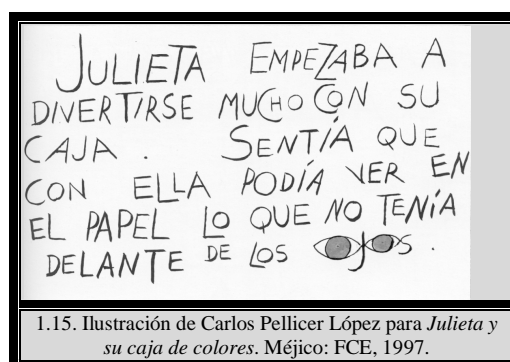 JULIETA EMPEZABA A
DIVERTIRSE MUCHO CON SU
CAJA. SENTÍA QUE
CON ELLA PODÍA VER EN
EL PAPEL LO QUE NO TENÍA
DELANTE DE LOS OJOS.
1.15. Ilustración de Carlos Pellicer López para Julieta y
su caja de colores. Méjico: FCE, 1997.